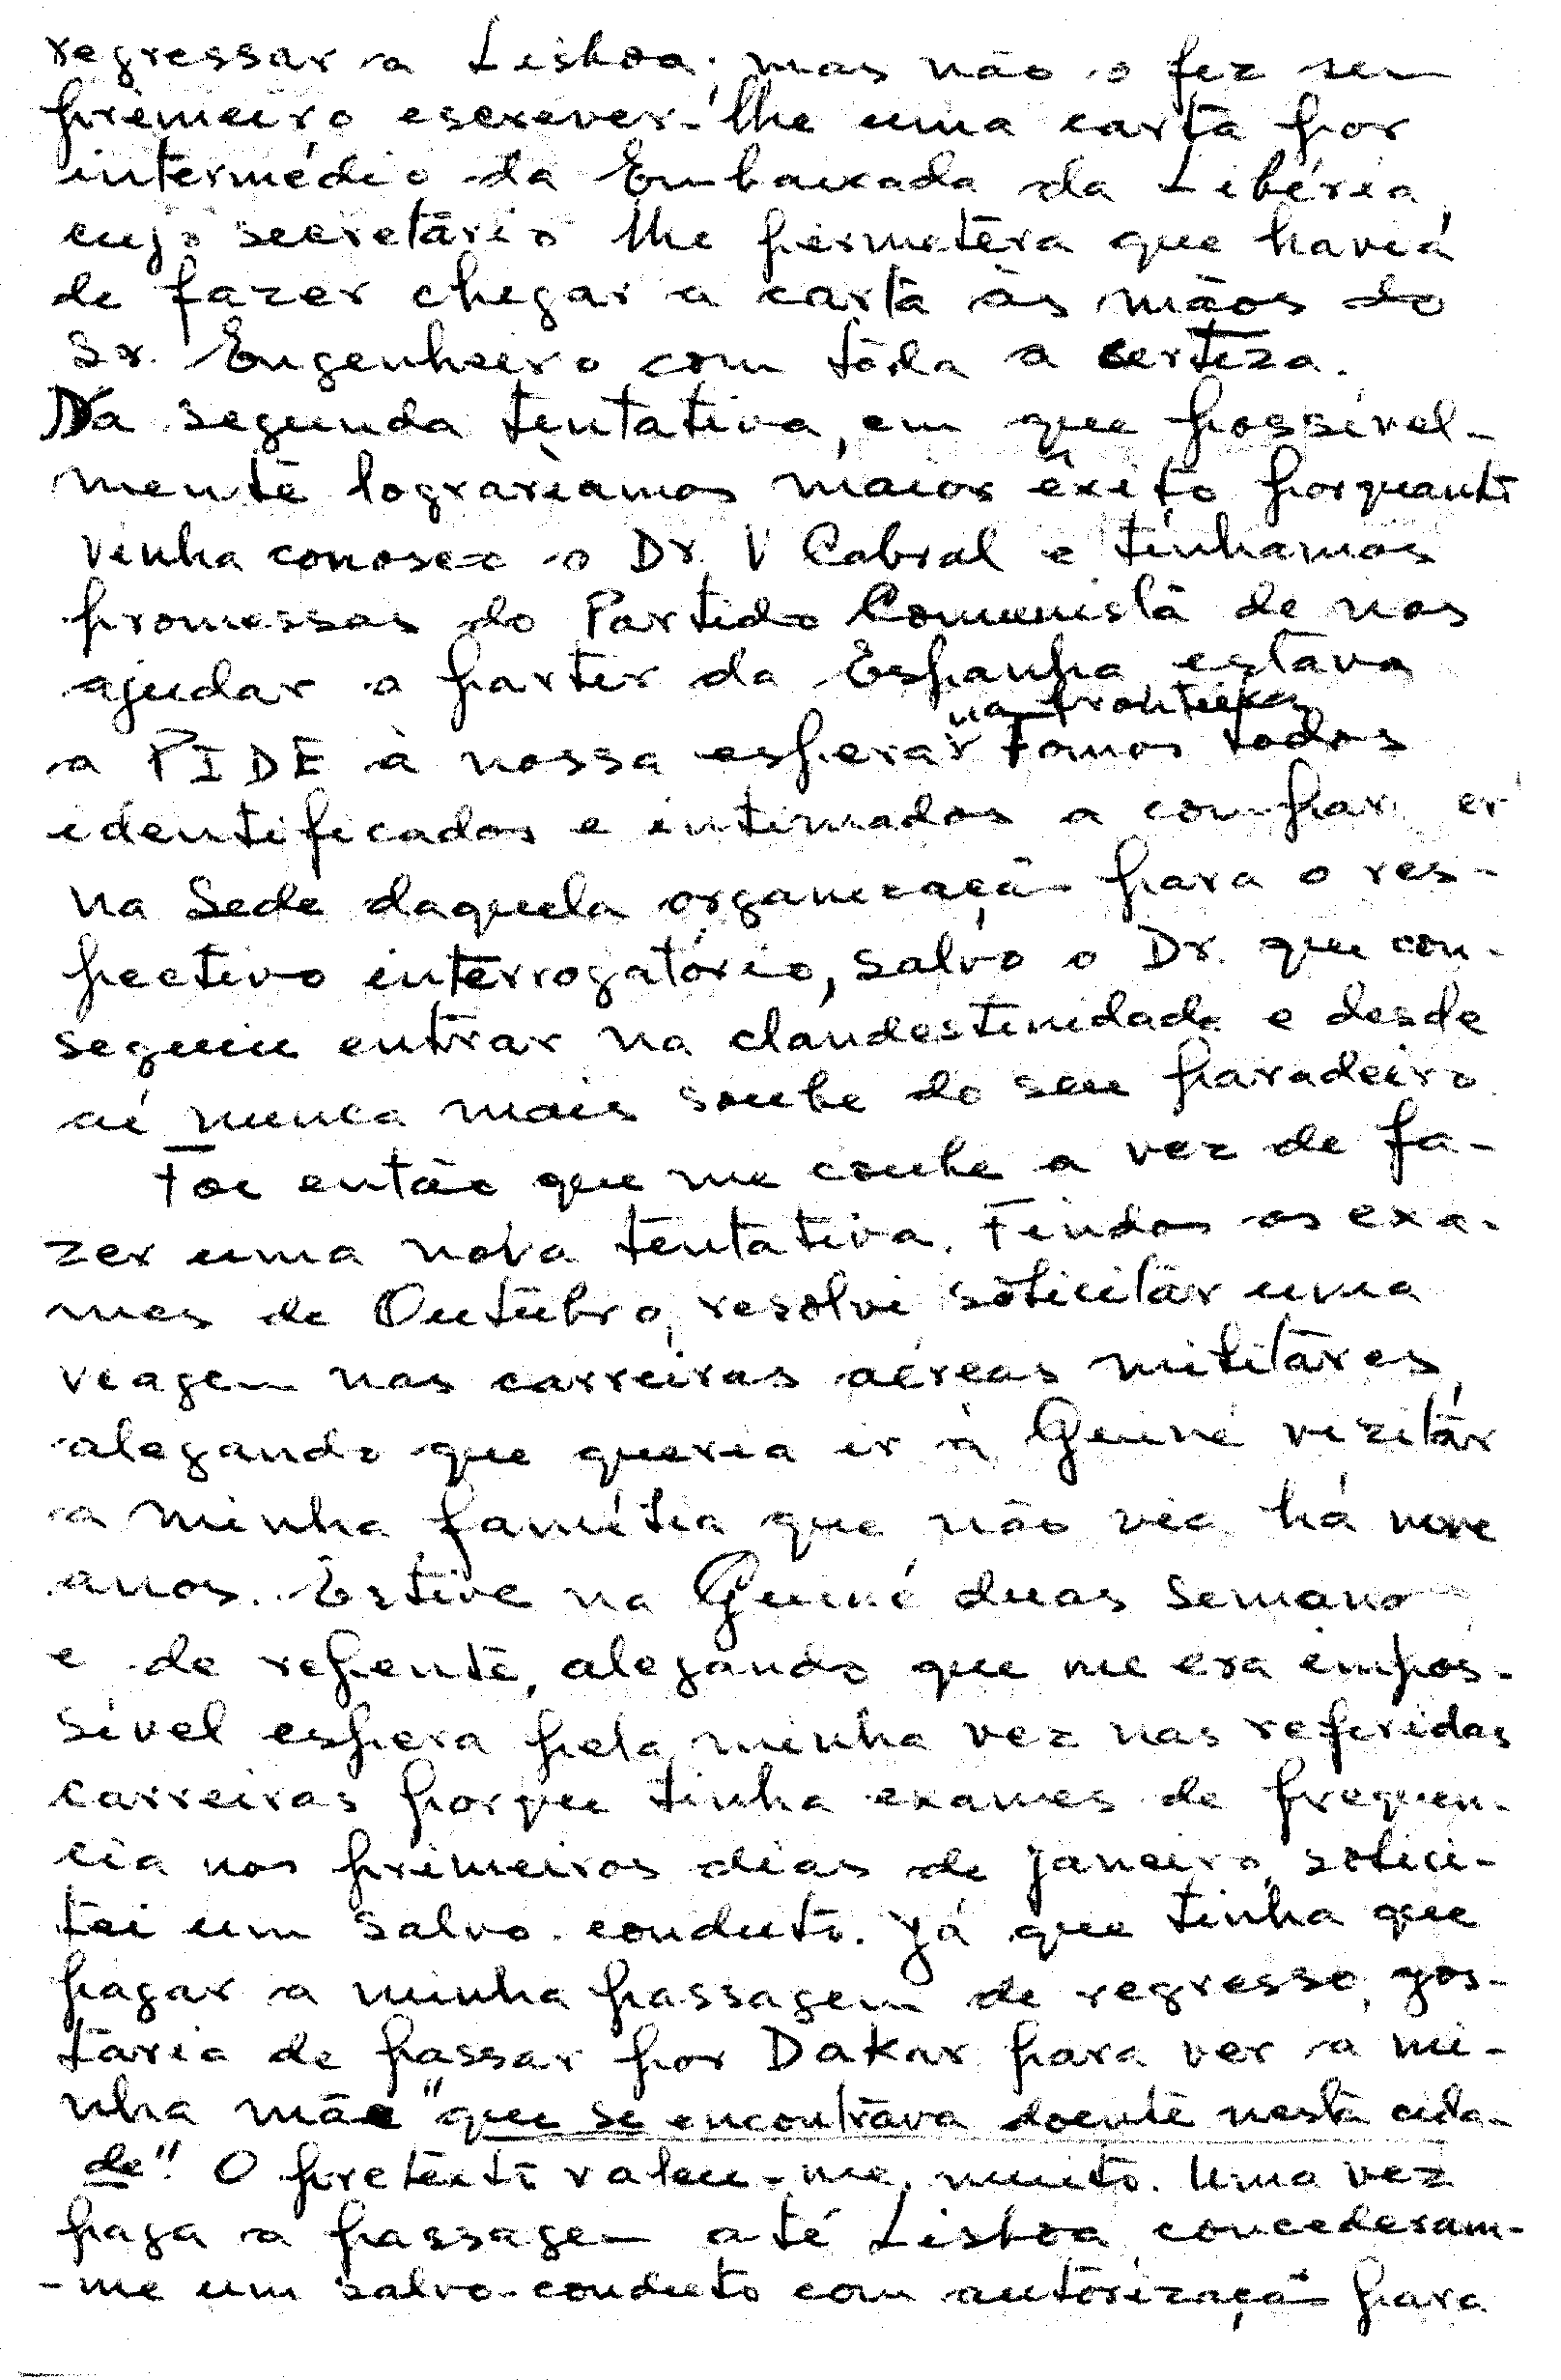 regressar a Lisboa, mas não o fez sem
primeiro escrever-lhe uma carta por
intermédio da Embaixada da Libéria,
cujo secretário lhe permetera que havia
de fazer chegar a carta às mãos do
Sr. Engenheiro com tôda a certeza.
Da segunda tentativa, em que possível-
mente lograriamos maior êxito porquanto
vinha conosco o Dr. V Cabral e tinhamos
promessas do Partido Comunista de nos
ajudar a partir da Espanha, estava
na fronteira
a PIDE à nossa espera. Fomos todos
identificados e intimados a comparecer
na Sede daquela organização para o res-
pectivo interrogatório, salvo o Dr. que con-
seguiu entrar na clandestinidade e desde
aí nunca mais soube do seu paradeiro.
Foi então que me coube a vez de fa-
zer uma nova tentativa. Findos os exa-
mes de Outubro, resolvi solicitar uma
viagem nas carreiras aéreas militares,
alegando que queria ir à Guiné visitar
a minha família que não via há nove
anos. Estive na Guiné duas semanas
e de repente, alegando que me era impos-
sível espera pela minha vez nas referidas
carreiras porque tinha exames de frequen-
cia nos primeiros dias de janeiro, solici-
tei um salvo-conduto. Já que tinha que
pagar a minha passagem de regresso, gos-
taria de passar por Dakar para ver a mi-
nha mãe "que se encontrava doente nesta cida-
de". O pretexto valeu-me muito. Uma vez
paga a passagem até Lisboa concederam-
-me um salvo-conduto com autorização para